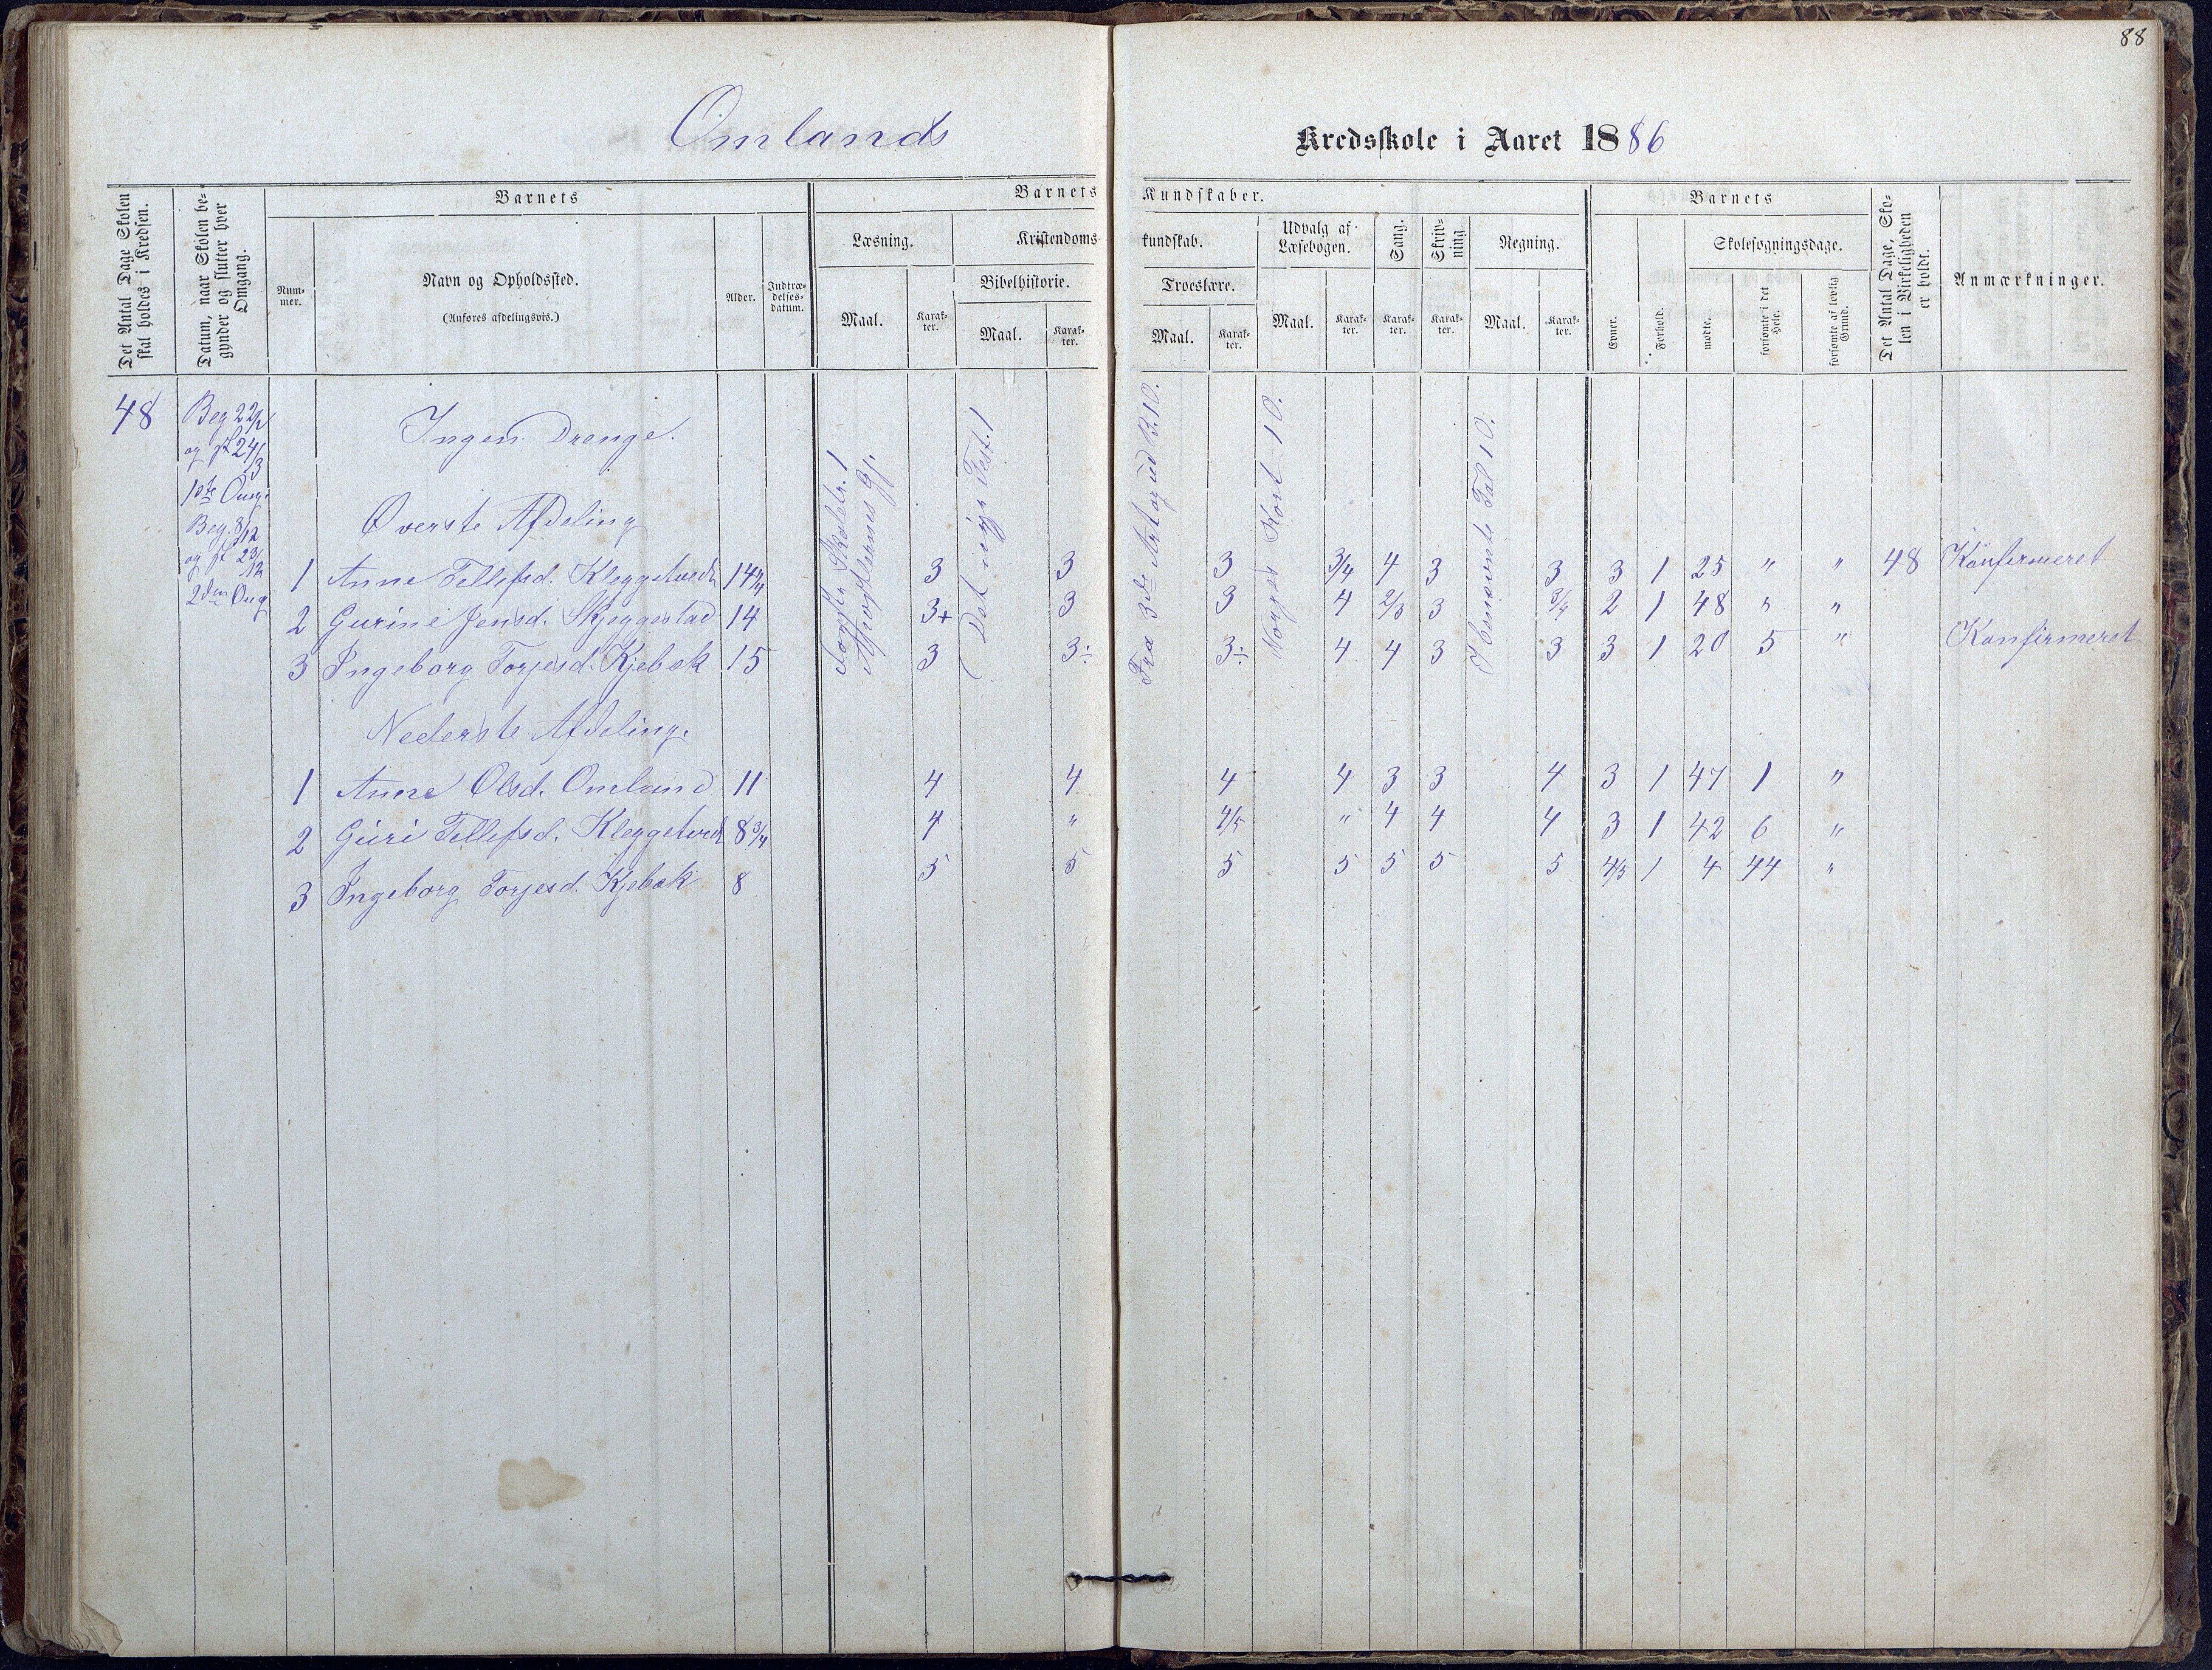 88
Omlands Kredsskole i Aaret 1886
Det Antal Dage Skolen skal holdes i Kredsen.
Datum, naar Skolen begynder og slutter hver Omgang.
Barnets
Num-
mer.
Navn og Opholdssted.
(Anføres afdelingsvis.)
Alder.
Indtræ-
delses-
datum.
Barnets Kundskaber.
Læsning.
Maal.
Karak-
ter.
Kristendoms-
kundskab.
Bibelhistorie.
Maal.
Karak-
ter.
Troeslære.
Maal.
Karak-
ter.
Udvalg af
Læsebogen.
Maal.
Karak-
ter.
Sang.
Karak-
ter.
Skriv-
ning.
Karak-
ter.
Regning.
Maal.
Karak-
ter.
Barnets
Evner.
Forhold.
Skolesøgningsdage.
mødte.
forsømte i det
Hele.
forsømte af lovlig
Grund.
Det Antal Dage, Sko-
len i Virkeligheden
er holdt.
Anmærkninger.
48
Beg 22/2
og sl 24/3
1ste Omg.
Beg. 8/12
og sl 23/12
2den Omg
Ingen Drenge.
Øverste Afdeling
Det nye Test. 1
Norges Kort 10.
Ubenævnte Tal 10.
1 Anne Tellefsd. Kleggetvedt 14 1/4 3 3 3 3/4 4 3 3 3 1 25 " " 48 Konfirmeret
2 Gurine Jensd. Skjeggestad 14 3+ 3 3 4 2/3 3 3/4 2 1 48 " "
3 Ingeborg Torjesd. Kjebæk 15 3 3÷ 3÷ 4 4 3 3 3 1 20 5 " Konfirmeret
Nederste Afdeling.
1 Anne Olsd. Omland 11 4 4 4 4 3 3 4 3 1 47 1 "
2 Guri Tellefsd. Kleggetvedt 8 3/4 4 " 4/5 " 4 4 4 3 1 42 6 "
3 Ingeborg Torjesd. Kjebæk 8 5 5 5 5 5 5 5 4/5 1 4 44 "